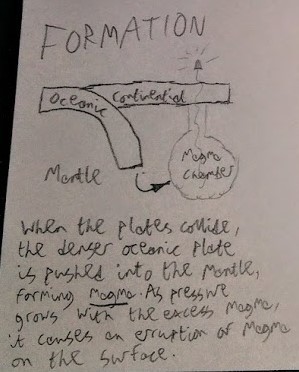 FORMATION
Oceanic Continential
Magma
Chamber
Mantle
When the plates collide,
the denser oceanic plate
is pushed into the mantle,
forming magma. As pressure
grows with the excess magma,
it causes an erruption of magma
on the surface.